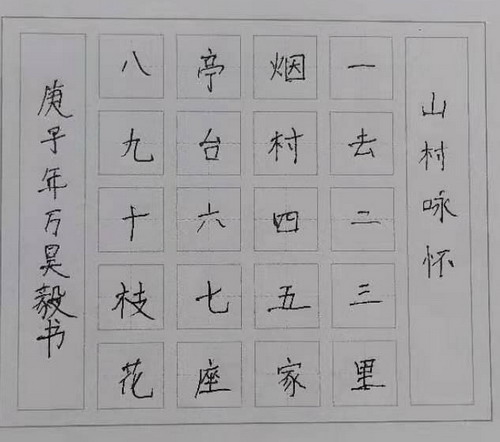 山村咏怀
一去二三里
烟村四五家
亭台六七座
八九十枝花
庚子年万昊毅书